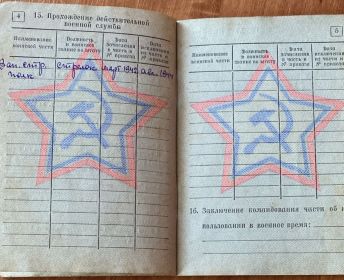 4
15. Прохождение действительной
военной службы
Наименование воинской части
Должность и воинское звание по штату
Дата зачисления в часть и № приказа
Дата исключения из части и № приказа
Зап. стр. стрелок март 1942 авг. 1944
полк
5
Наименование воинской части
Должность и воинское звание по штату
Дата зачисления в часть и № приказа
Дата исключения из части и № приказа
16. Заключение командования части об и
пользовании в военное время: